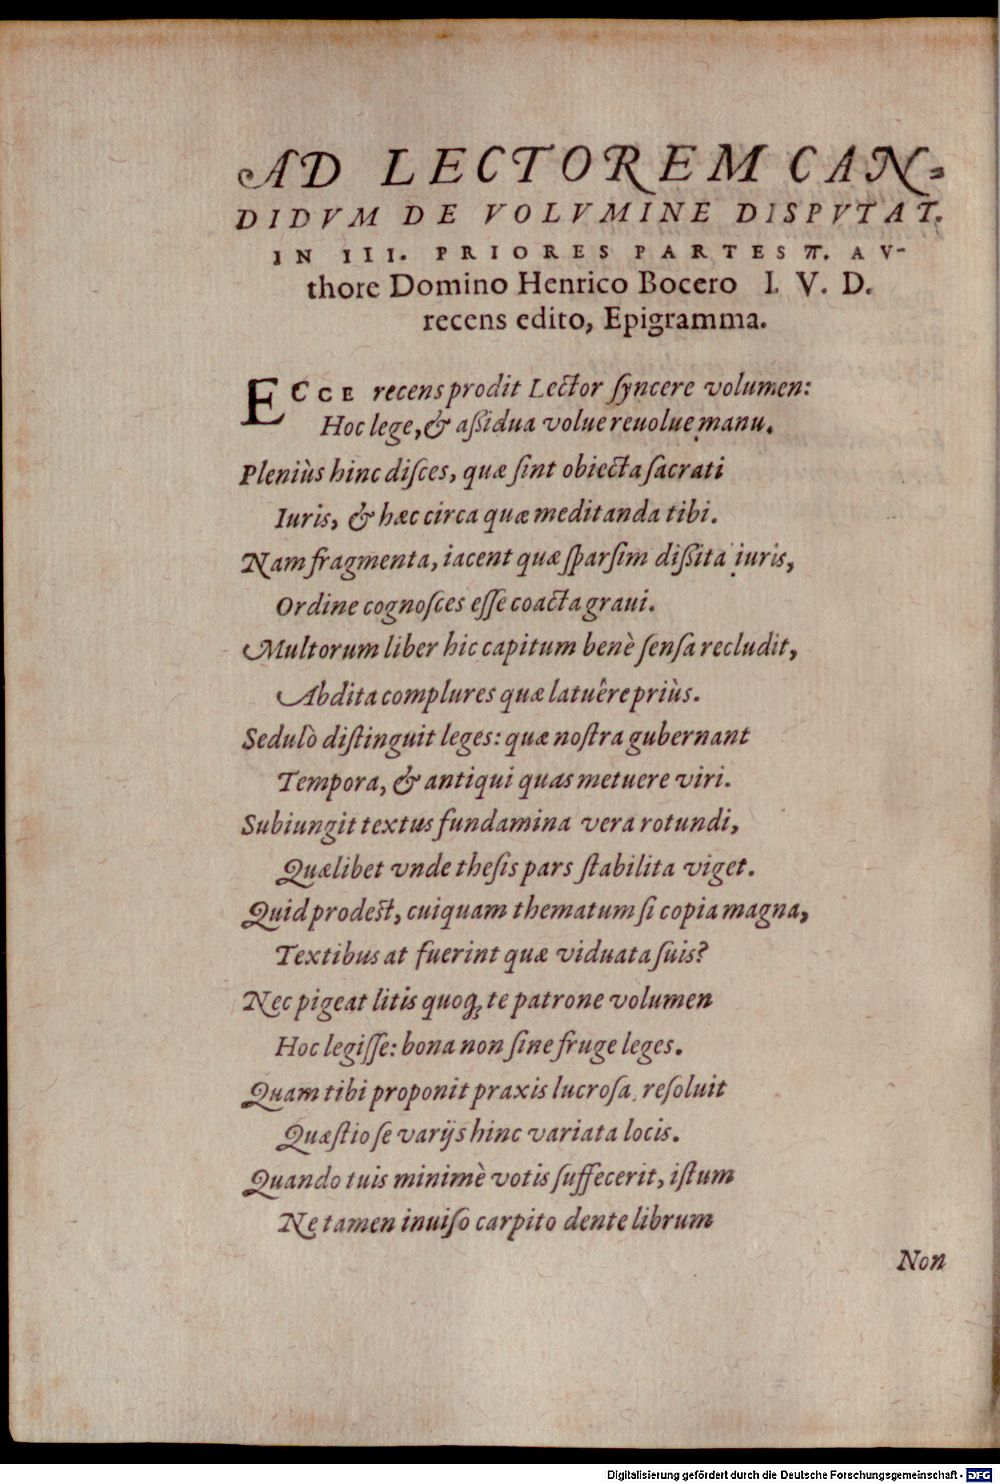 AD LECTOREM CAN-
DIDVM DE VOLVMINE DISPVTAT.
IN III. PRIORES PARTES π. AV-
thore Domino Henrico Bocero I. V. D.
recens edito, Epigramma.
ECCE recens prodit Lector ſyncere volumen:
Hoc lege, & aßidua volue reuolue manu.
Pleniùs hinc diſces, quæ ſint obiecta ſacrati
Iuris, & hæc circa quæ meditanda tibi.
Nam fragmenta, iacent quæ ſparſim dißita iuris,
Ordine cognoſces eſſe coacta graui.
Multorum liber hic capitum benè ſenſa recludit,
Abdita complures quæ latuêre priùs.
Sedulò diſtinguit leges: quæ noſtra gubernant
Tempora, & antiqui quas metuere viri.
Subiungit textus fundamina vera rotundi,
Quælibet vnde theſis pars ſtabilita viget.
Quid prodest, cuiquam thematum ſi copia magna,
Textibus at fuerint quæ viduata ſuis?
Nec pigeat litis quoq; te patrone volumen
Hoc legiſſe: bona non ſine fruge leges.
Quam tibi proponit praxis lucroſa, reſoluit
Quæſtio ſe varijs hinc variata locis.
Quando tuis minimè votis ſuffecerit, iſtum
Ne tamen inuiſo carpito dente librum
Non
Digitalisierung gefördert durch die Deutsche Forschungsgemeinschaft - DFG